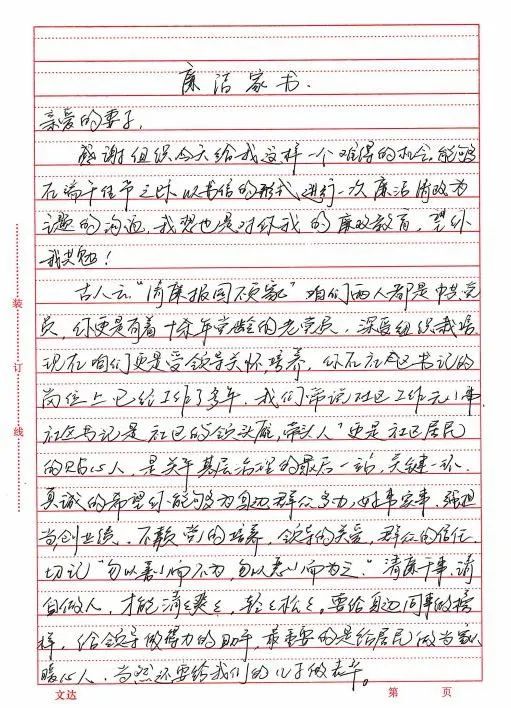 廉洁家书.
亲爱的妻子,
感谢组织今天给我这样一个难得的机会,能够
在端午佳节之外以书信的形式进行一次廉洁清政为
主题的沟通,我想也是对你我的廉政教育,望你
我共勉!
古人云"清廉报国不负家"咱们两人都是中共党
员,你更是有着十余年党龄的老党员,深受组织栽培
现在咱们更是受领导关怀培养,你在社区书记的
岗位上已经工作了多年,我们常说社区工作无小事
社区书记是社区的领头雁,带头人"更是社区居民
的贴心人,是关乎基层治理的最后一站,关键一环
真诚的希望你能够为身边群众多办好事实事,强担
当创业绩,不负党的培养,领导的关爱,群众的信任
切记"勿以善小而不为,勿以恶小而为之."清廉干事,清
白做人,才能清清爽爽,轻轻松松,要给身边同事做榜
样,给领导做得力的助手,最重要的是给居民做当家人
暖心人,当然还要给我们的儿子做表率。
装
订
线
文达
第 页